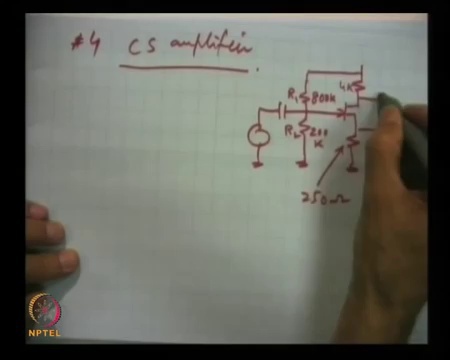 #4 CS amplifier
4K
R1 800K
R2 200
K
250Ω
NPTEL